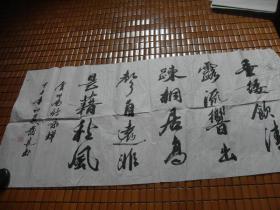 垂緌飲清
露流響出
疎桐居高
聲自遠非
是藉秋風